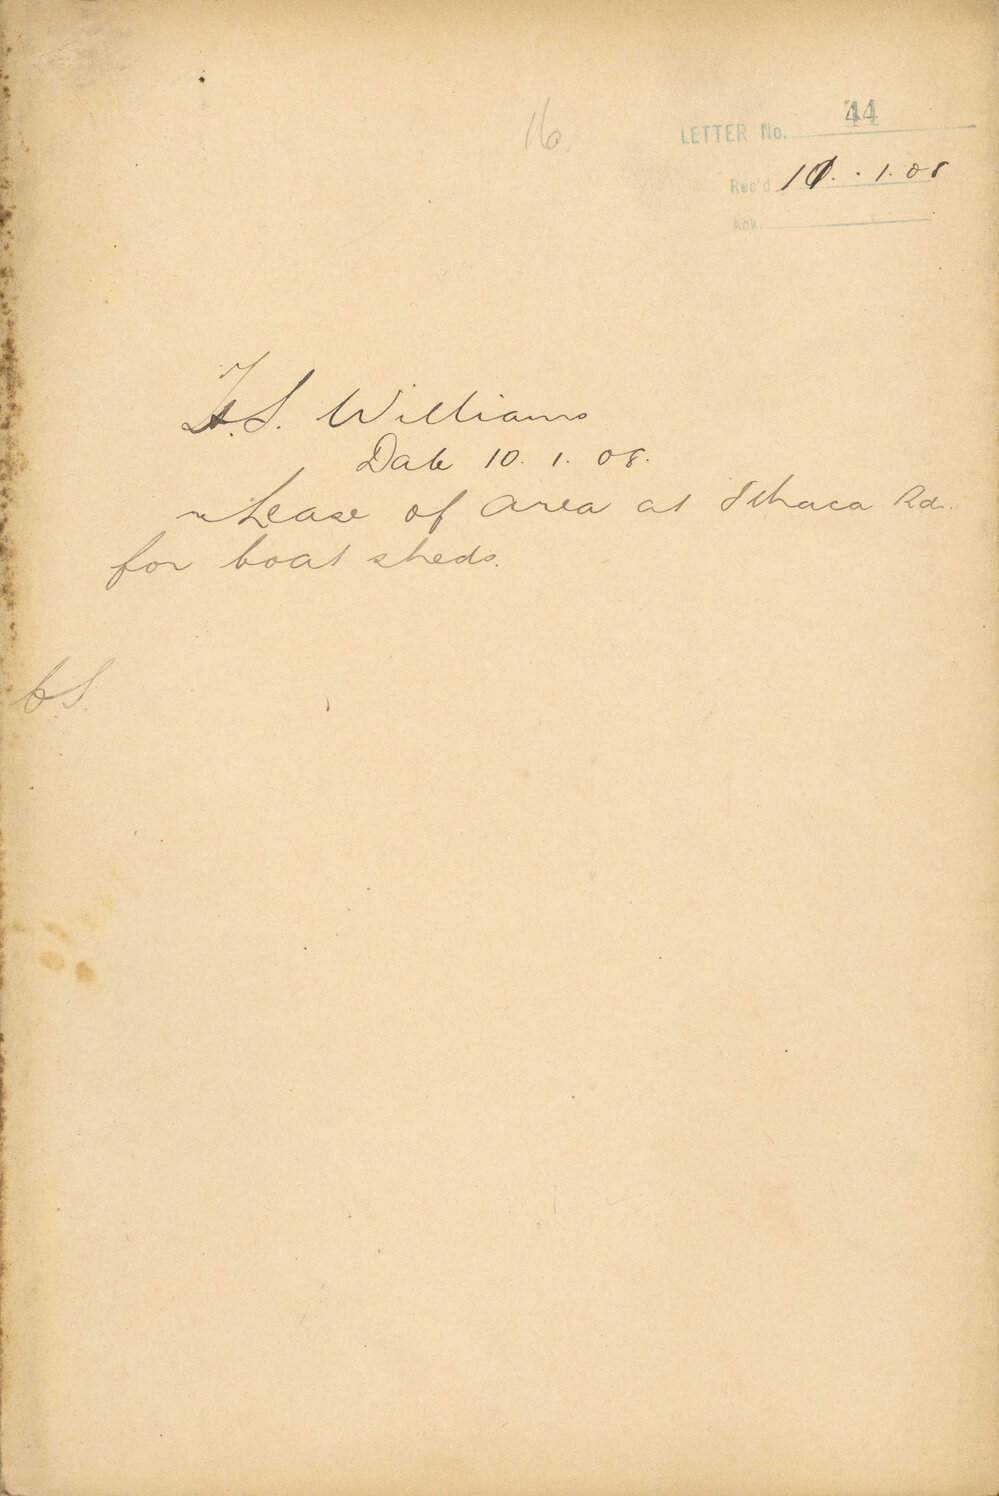 16.
LETTER No. 44
Rec'd 11.1.08
Ack.
F.S. Williams
Date 10.1.08.
Lease of area at Ithaca Rd.
for boat sheds.